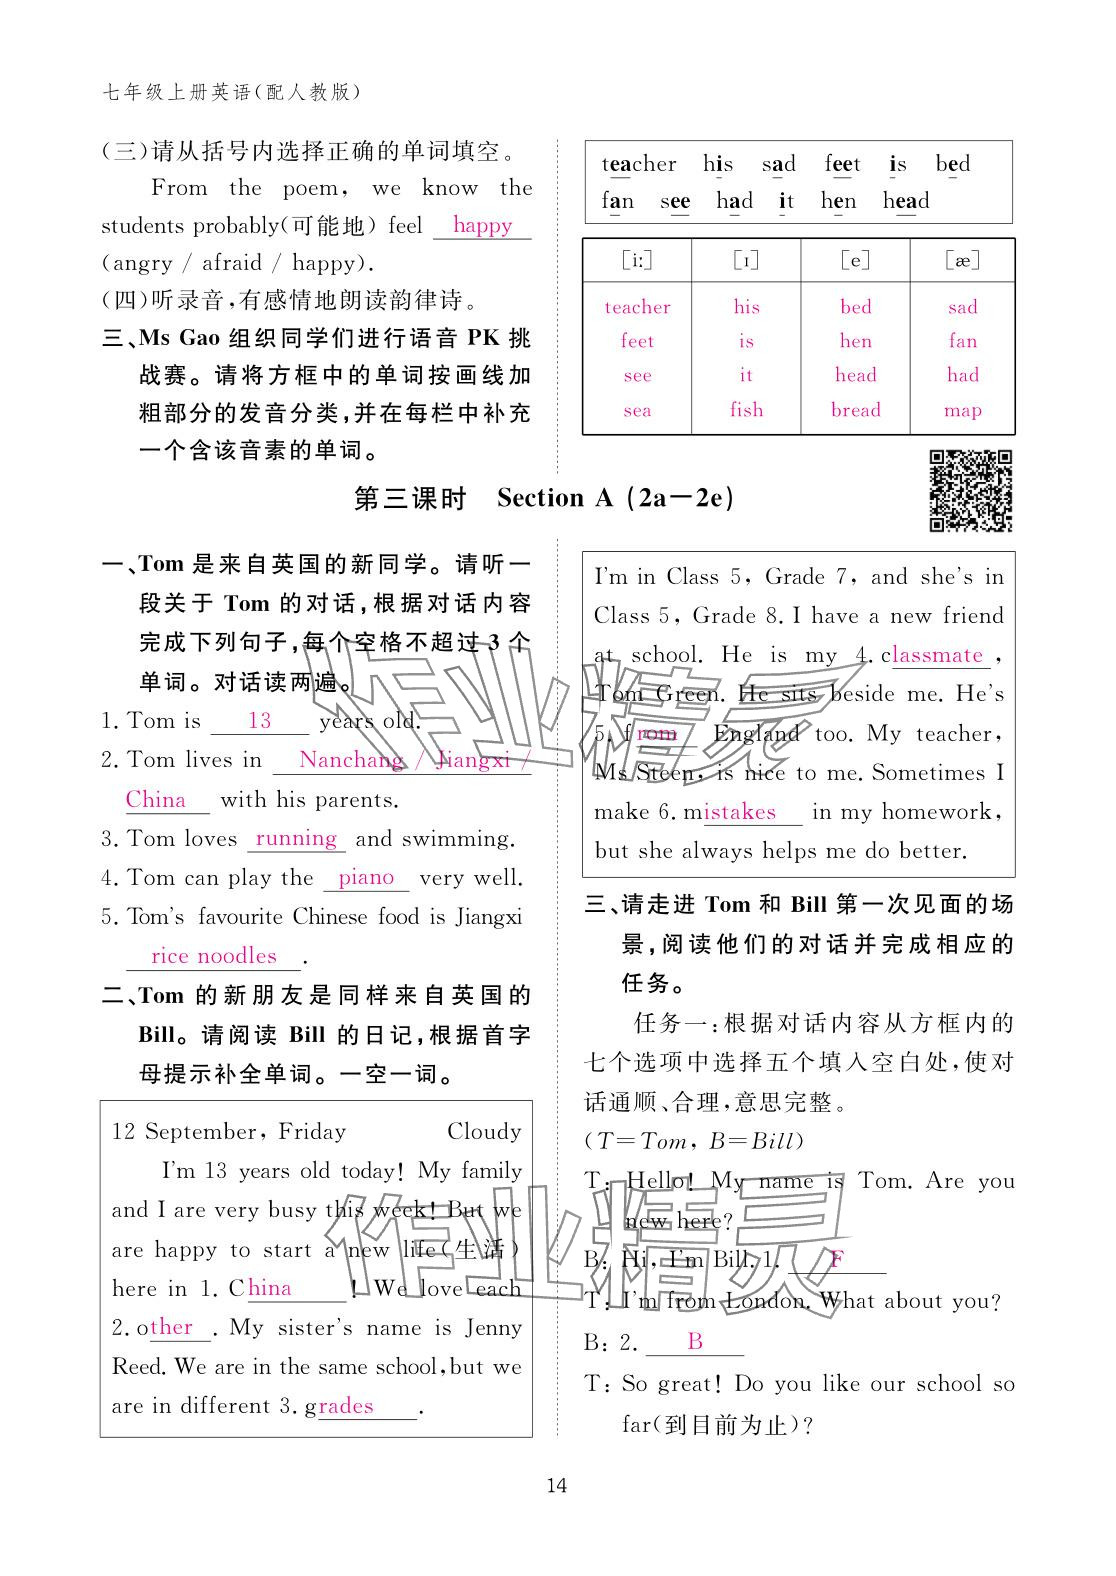 七年级上册英语(配人教版)
(三)请从括号内选择正确的单词填空。
From the poem, we know the
students probably(可能地) feel happy
(angry / afraid / happy).
(四)听录音,有感情地朗读韵律诗。
三、Ms Gao 组织同学们进行语音 PK 挑
战赛。请将方框中的单词按画线加
粗部分的发音分类,并在每栏中补充
一个含该音素的单词。
teacher his sad feet is bed
fan see had it hen head
[iː] [ɪ] [e] [æ]
teacher his bed sad
feet is hen fan
see it head had
sea fish bread map
第三课时 Section A (2a—2e)
一、Tom 是来自英国的新同学。请听一
段关于 Tom 的对话,根据对话内容
完成下列句子,每个空格不超过 3 个
单词。对话读两遍。
1. Tom is 13 years old.
2. Tom lives in Nanchang / Jiangxi /
China with his parents.
3. Tom loves running and swimming.
4. Tom can play the piano very well.
5. Tom's favourite Chinese food is Jiangxi
rice noodles.
二、Tom 的新朋友是同样来自英国的
Bill。请阅读 Bill 的日记,根据首字
母提示补全单词。一空一词。
12 September, Friday Cloudy
I'm 13 years old today! My family
and I are very busy this week! But we
are happy to start a new life(生活)
here in 1. China! We love each
2. other. My sister's name is Jenny
Reed. We are in the same school, but we
are in different 3. grades.
I'm in Class 5, Grade 7, and she's in
Class 5, Grade 8. I have a new friend
at school. He is my 4. classmate,
Tom Green. He sits beside me. He's
5. from England too. My teacher,
Ms Steen, is nice to me. Sometimes I
make 6. mistakes in my homework,
but she always helps me do better.
三、请走进 Tom 和 Bill 第一次见面的场
景,阅读他们的对话并完成相应的
任务。
任务一:根据对话内容从方框内的
七个选项中选择五个填入空白处,使对
话通顺、合理,意思完整。
(T=Tom, B=Bill)
T: Hello! My name is Tom. Are you
new here?
B: Hi, I'm Bill. 1. F
T: I'm from London. What about you?
B: 2. B
T: So great! Do you like our school so
far(到目前为止)?
14
作业精灵
作业精灵